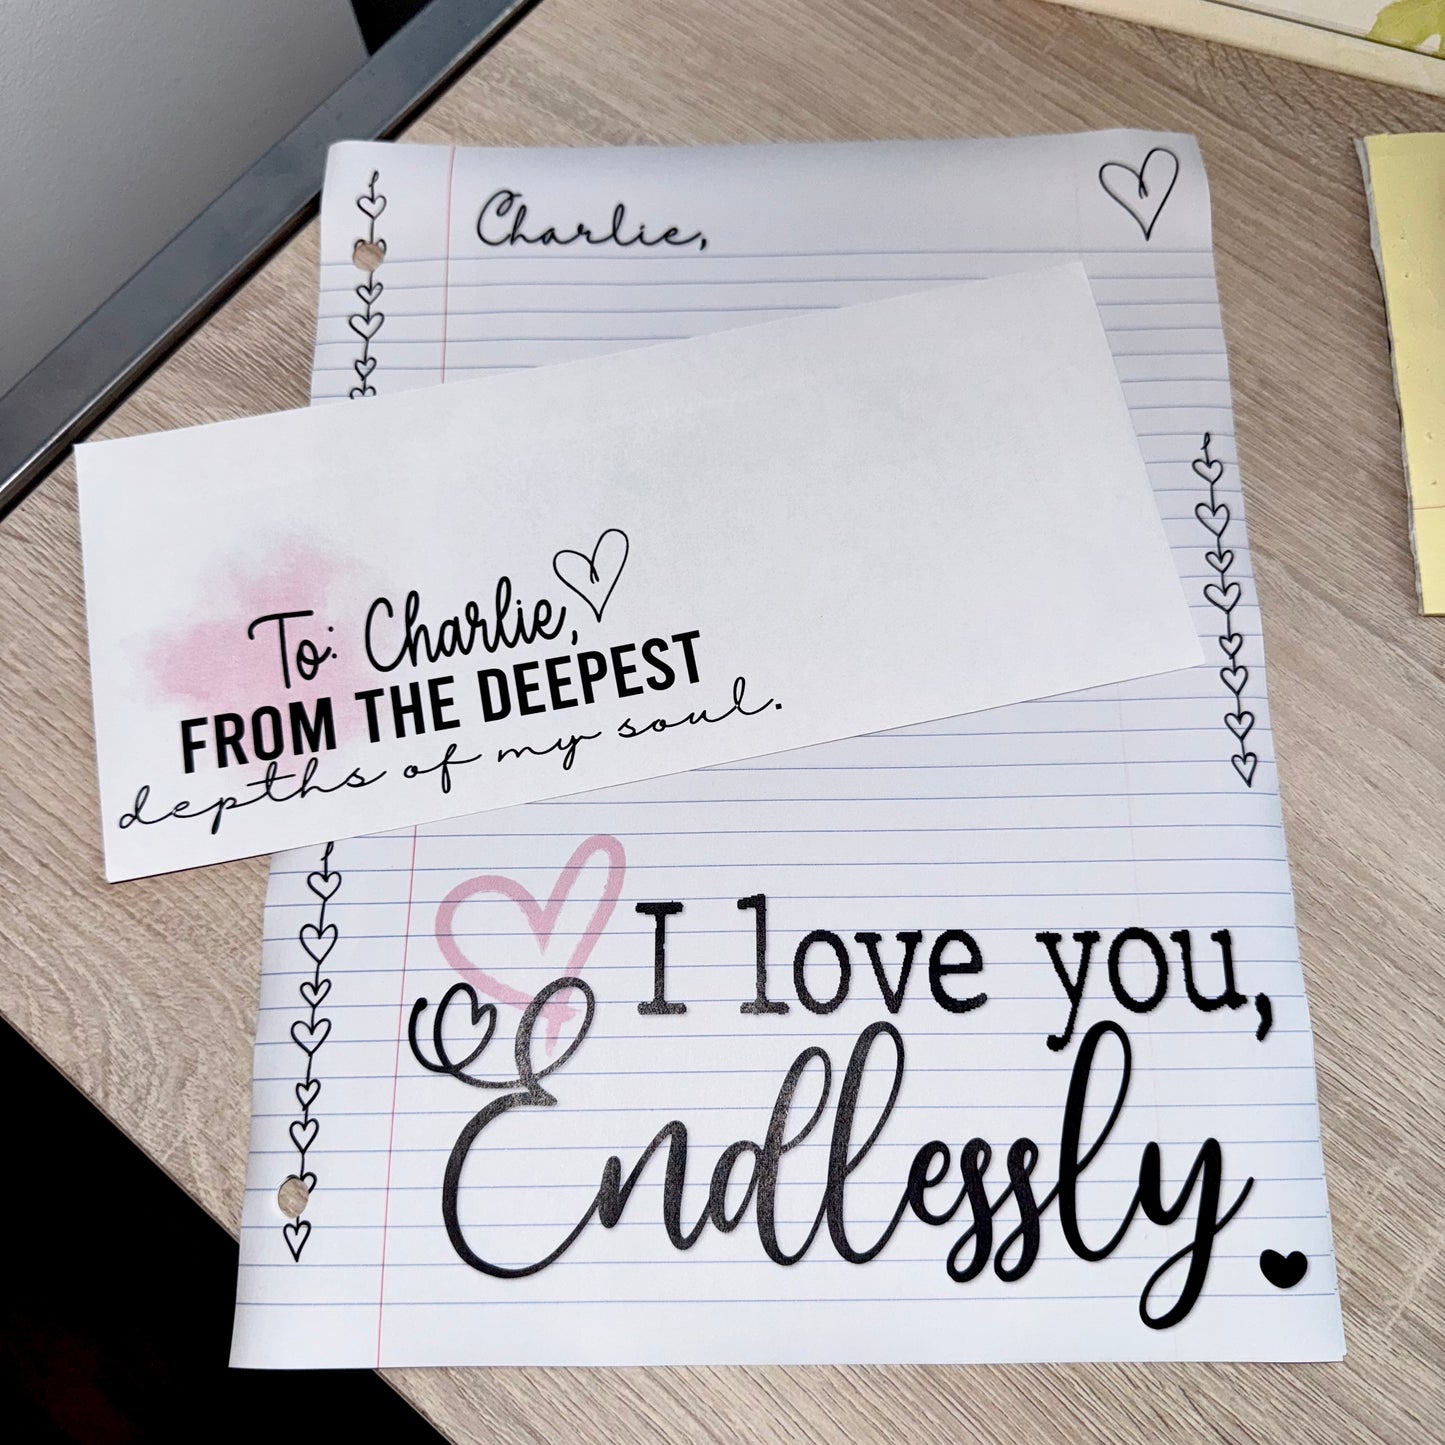 Charlie,
To: Charlie,
FROM THE DEEPEST
depths of my soul.
I love you,
Endlessly.